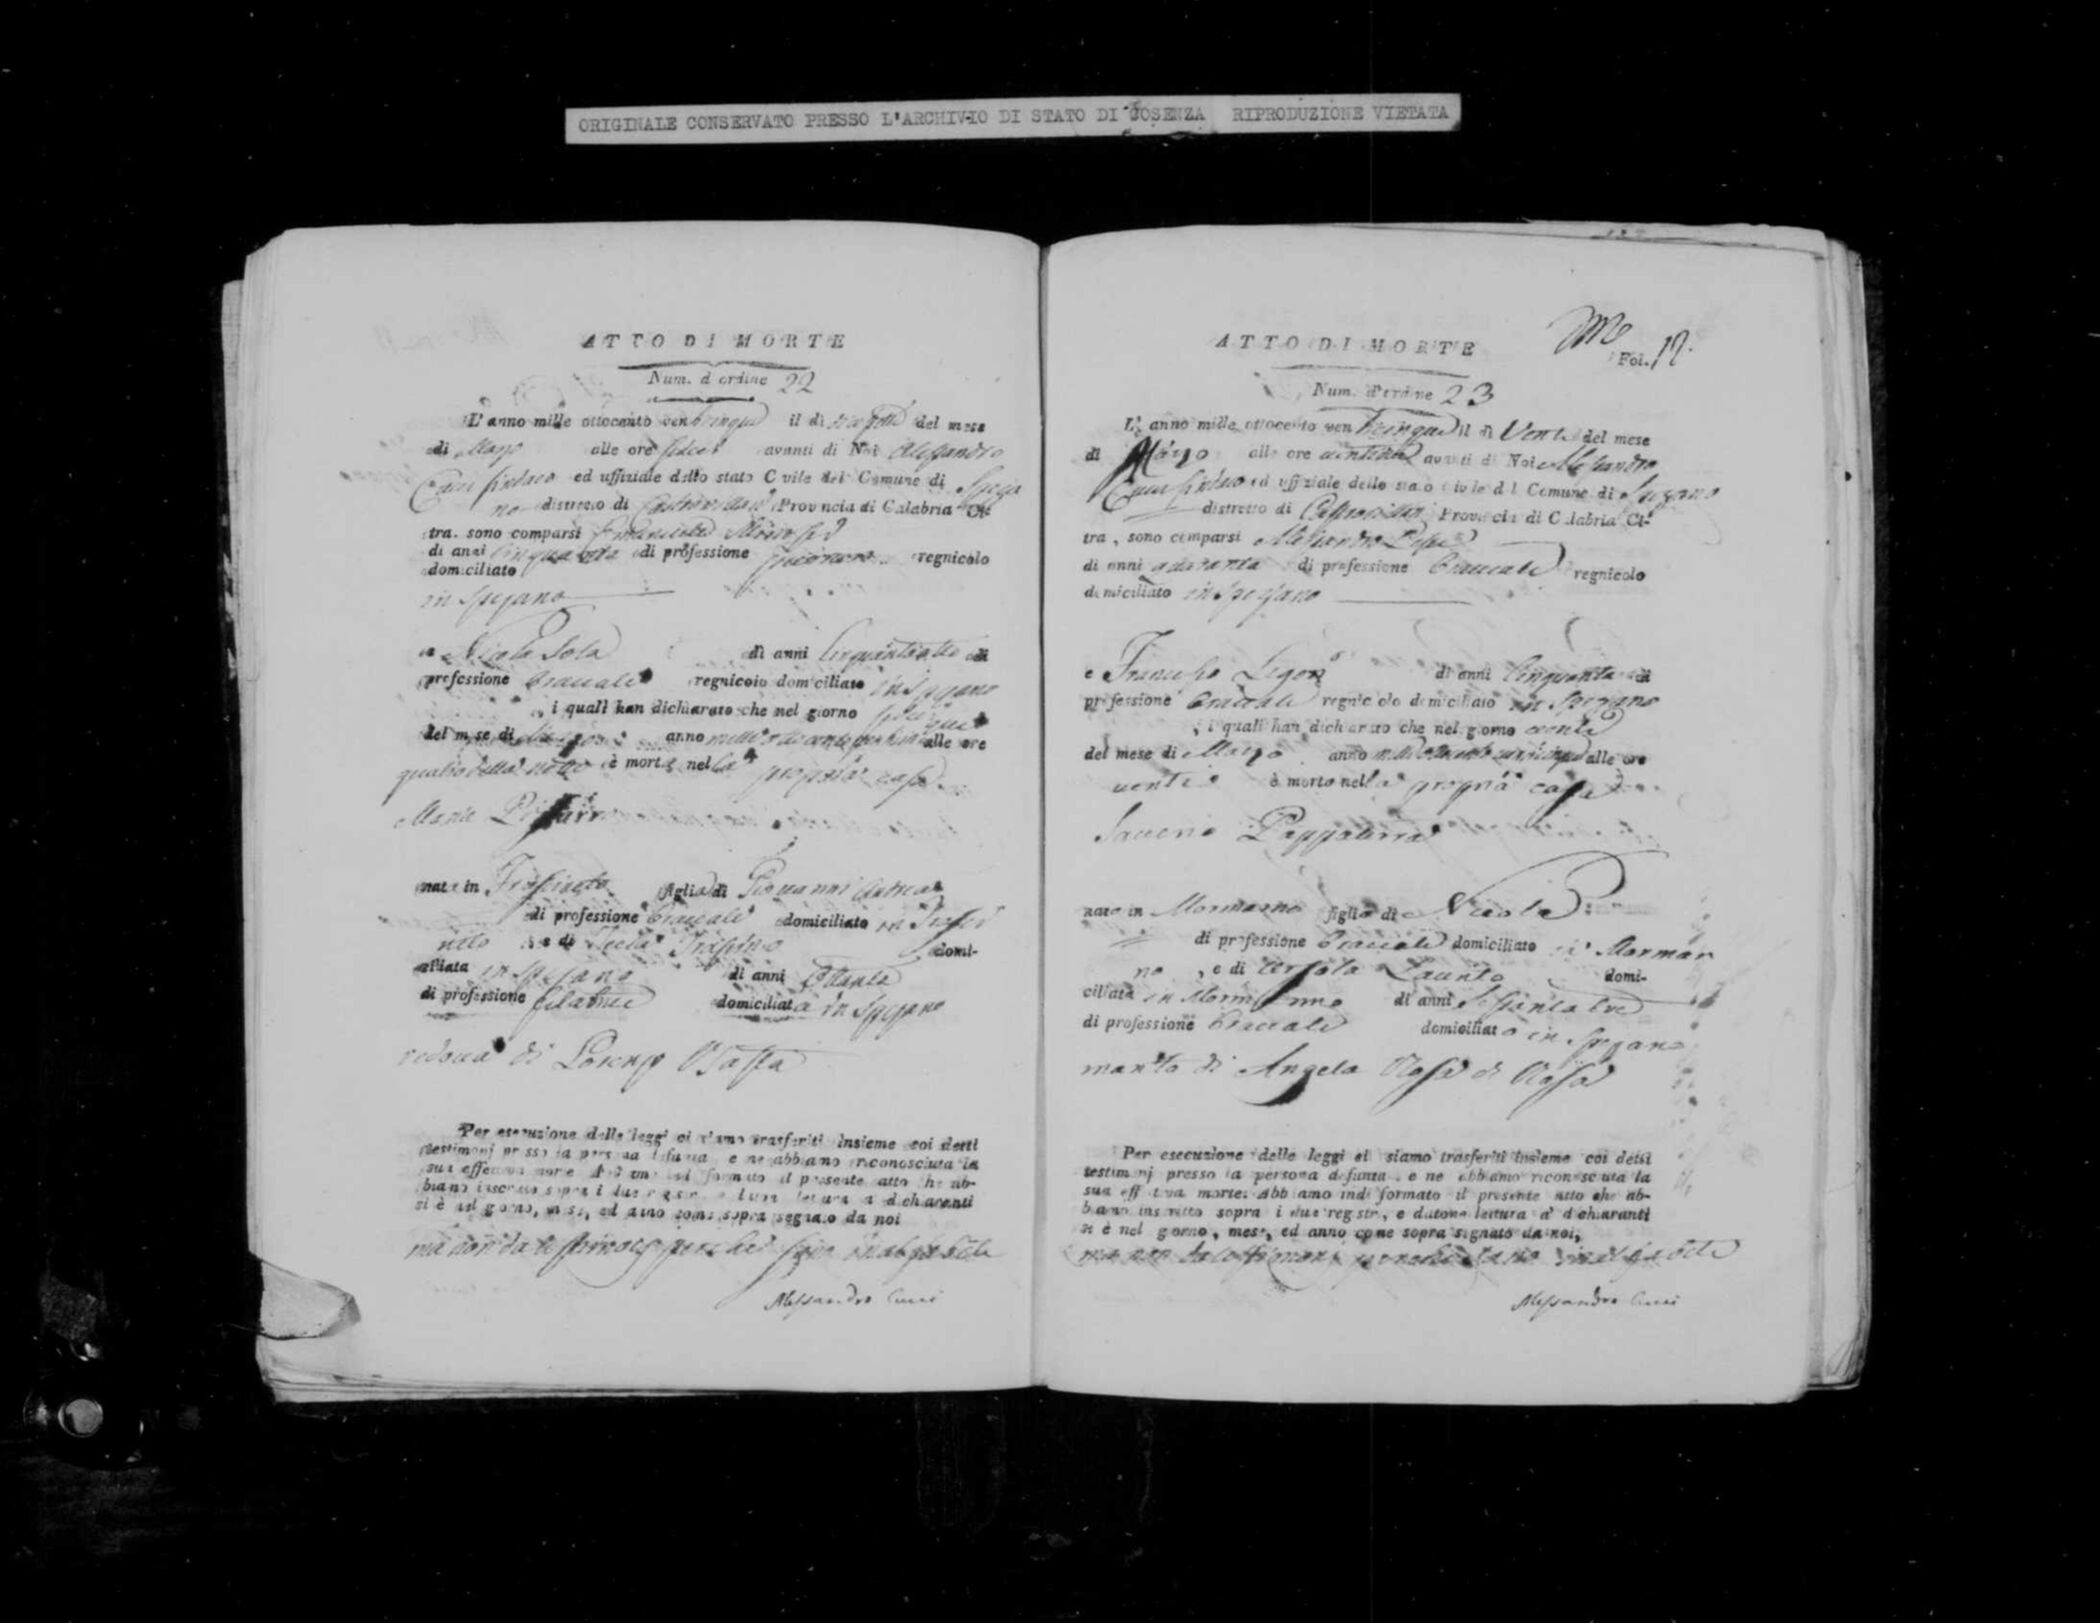 ORIGINALE CONSERVATO PRESSO L'ARCHIVIO DI STATO DI COSENZA RIPRODUZIONE VIETATA
ATTO DI MORTE
Num. d'ordine 22
L'anno mille ottocento venticinque il di diecisette del mese
di Marzo alle ore sedici avanti di Noi Alessandro
Cucci Sindaco ed uffiziale dello stato Civile del Comune di Spezza
no distretto di Castrovillari Provincia di Calabria Ci-
tra, sono comparsi
di anni cinquanta di professione regnicolo
domiciliato
in Spezzano
e Nicola Sola di anni cinquantotto di
professione bracciale regnicolo domiciliato in Spezzano
, i quali han dichiarato che nel giorno
del mese di Marzo anno mille ottocento venticinque alle ore
quattro della notte è morta nella propria casa
Maria
nata in Frascineto figlia di Giovanni Andrea
di professione bracciale domiciliato in Frasci
neto e di domi-
ciliata in Spezzano di anni ottanta
di professione filatrice domiciliata in Spezzano
vedova di Lorenzo
Per esecuzione delle leggi ci siamo trasferiti insieme coi detti
testimonj presso la persona defunta, e ne abbiamo riconosciuta la
sua effettiva morte. Abbiamo indi formato il presente atto che ab-
biamo inscritto sopra i due registri, e datone lettura a' dichiaranti
si è nel giorno, mese, ed anno come sopra segnato da noi
ma non da testimonj perché sono inalfabeti
Alessandro Cucci
ATTO DI MORTE
Fol. 12.
Num. d'ordine 23
L'anno mille ottocento venticinque il di venti del mese
di Marzo alle ore avanti di Noi Alessandro
Cucci Sindaco ed uffiziale dello stato civile del Comune di Spezzano
distretto di Castrovillari Provincia di Calabria Ci-
tra, sono comparsi Alessandro
di anni quaranta di professione bracciale regnicolo
domiciliato in Spezzano
e Francesco di anni cinquanta di
professione bracciale regnicolo domiciliato in Spezzano
, i quali han dichiarato che nel giorno venti
del mese di Marzo anno mille ottocento venticinque alle ore
venti è morto nella propria casa
Saverio Pappaterra
nato in Mormanno figlio di Nicola
di professione bracciale domiciliato in Morman
no, e di Laurito domi-
ciliata in Mormanno di anni sessantatre
di professione bracciale domiciliato in Spezzano
marito di Angela Rosa di Rosa
Per esecuzione delle leggi ci siamo trasferiti insieme coi detti
testimonj presso la persona defunta, e ne abbiamo riconosciuta la
sua effettiva morte. Abbiamo indi formato il presente atto che ab-
biamo inscritto sopra i due registri, e datone lettura a' dichiaranti
si è nel giorno, mese, ed anno come sopra signato da noi,
ma non da testimonj perché sono inalfabeti
Alessandro Cucci